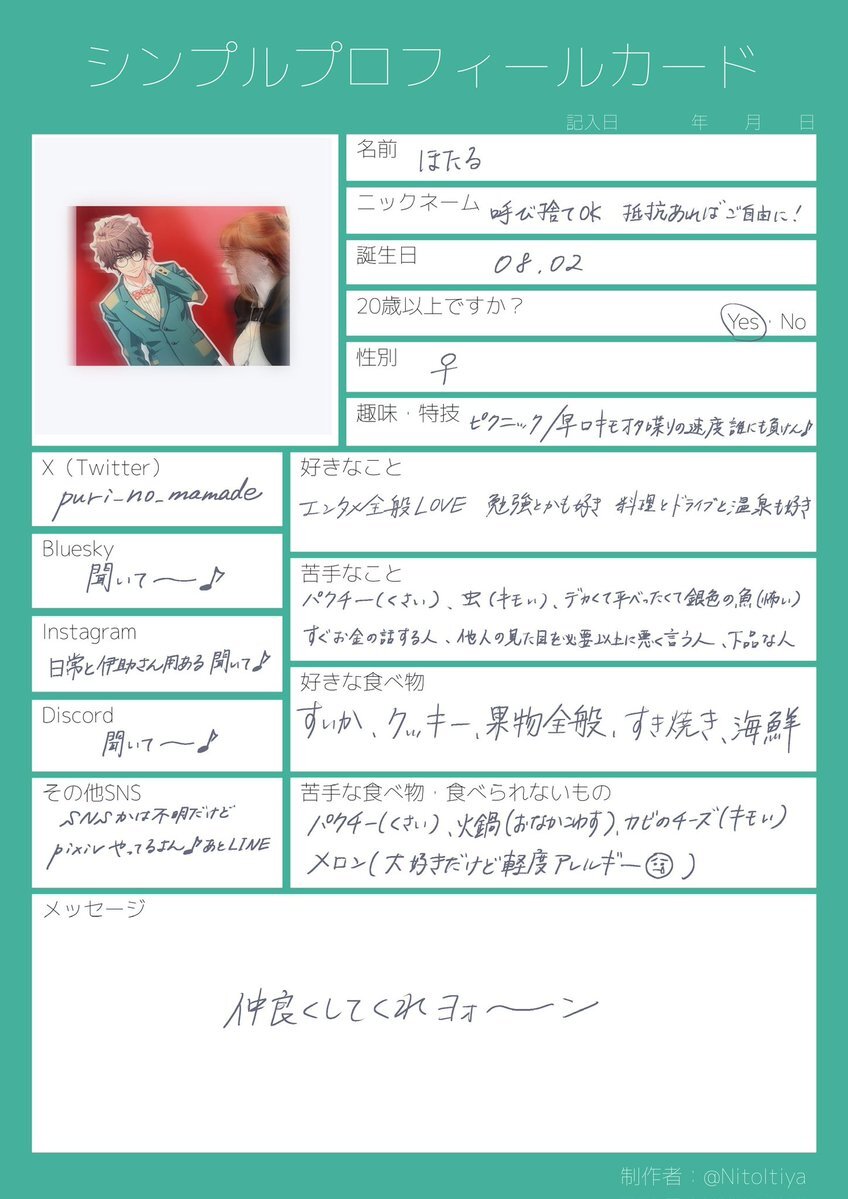 シンプルプロフィールカード
記入日　年　月　日
名前　ほたる
ニックネーム　呼び捨てOK　抵抗あればご自由に!
誕生日　08.02
20歳以上ですか？
Yes・No
性別　♀
趣味・特技　ピクニック/早口キモオタ喋りの速度誰にも負けん♪
X（Twitter）
puri_no_mamade
Bluesky
聞いて〜♪
Instagram
日常と伊助さん用ある 聞いて♪
Discord
聞いて〜♪
その他SNS
SNSかは不明だけど
pixivやってるよん♪あとLINE
好きなこと
エンタメ全般LOVE　勉強とかも好き　料理とドライブと温泉も好き
苦手なこと
パクチー(くさい)、虫(キモい)、デカくて平べったくて銀色の魚(怖い)
すぐお金の話する人、他人の見た目を必要以上に悪く言う人、下品な人
好きな食べ物
すいか、クッキー、果物全般、すき焼き、海鮮
苦手な食べ物・食べられないもの
パクチー(くさい)、火鍋(おなかこわす)、カビのチーズ(キモい)
メロン(大好きだけど軽度アレルギー)
メッセージ
仲良くしてくれヨォ〜ン
制作者：@Nitoltiya